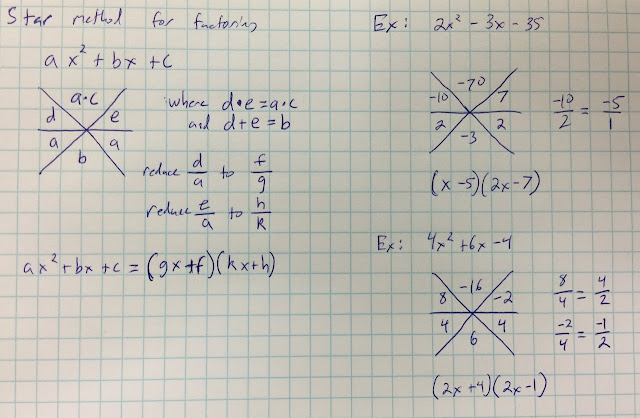 Star method for factoring
ax² + bx + c
a·c
d e
a a
b
where d•e = a·c
and d+e = b
reduce d/a to f/g
reduce e/a to h/k
ax² + bx + c = (gx+f)(kx+h)
Ex: 2x² - 3x - 35
-70
-10 7
2 2
-3
-10/2 = -5/1
(x-5)(2x-7)
Ex: 4x² + 6x - 4
-16
8 -2
4 4
6
8/4 = 4/2
-2/4 = -1/2
(2x+4)(2x-1)